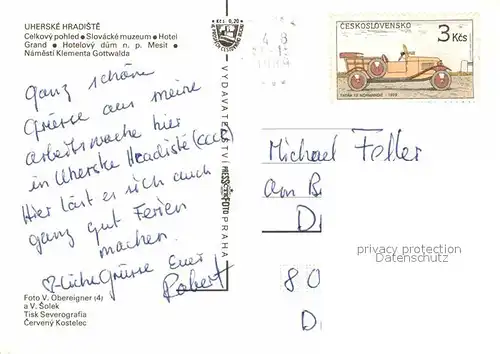 UHERSKÉ HRADIŠTĚ
Celkový pohled • Slovácké muzeum • Hotel
Grand • Hotelový dům n. p. Mesit •
Náměstí Klementa Gottwalda
Ganz schöne
Grüsse aus meine
Arbeitswoche hier
in Uherske Hradiste (CCCS)
Hier läst es sich auch
ganz gut Ferien
machen.
♡-liche Grüsse Euer
Robert
Foto V. Obereigner (4)
a V. Šolek
Tisk Severografia
Červený Kostelec
Kčs 0,70
VYDAVATELSTVÍ PRESSFOTO PRAHA
ČESKOSLOVENSKO
3 Kčs
Michael Feller
am B
D
80
D
privacy protection
Datenschutz